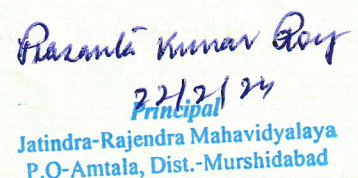 Prasanta Kumar Roy
22/2/24
Principal
Jatindra-Rajendra Mahavidyalaya
P.O-Amtala, Dist.-Murshidabad